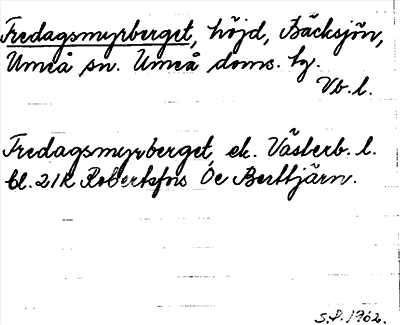 Fredagsmyrberget, höjd, Bäcksjön,
Umeå sn. Umeå doms. hg.
Vb. l.
Fredagsmyrberget, ek. Västerb. l.
bl. 21K Robertsfors Öe Berttjärn.
S.P. 1962.